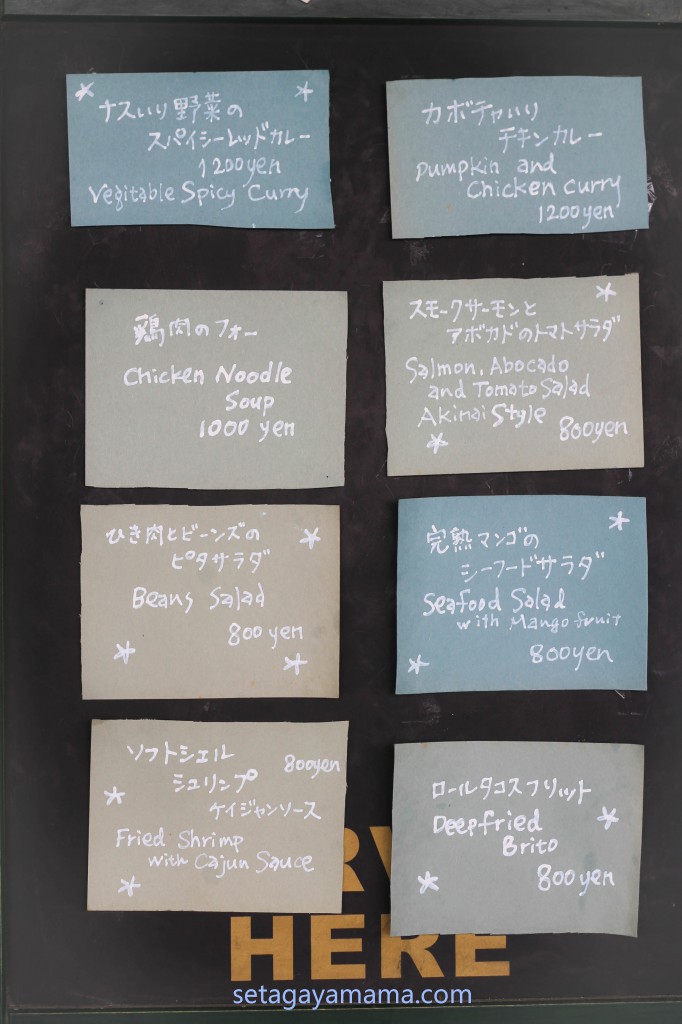 ナスいり野菜の
スパイシーレッドカレー
1200yen
Vegitable Spicy Curry
カボチャいり
チキンカレー
Pumpkin and
Chicken Curry
1200yen
鶏肉のフォー
Chicken Noodle
Soup
1000 yen
スモークサーモンと
アボカドのトマトサラダ
Salmon, Abocado
and Tomato Salad
Akinai Style
800yen
ひき肉とビーンズの
ピタサラダ
Beans Salad
800 yen
完熟マンゴの
シーフードサラダ
Seafood Salad
with Mango fruit
800yen
ソフトシェル
800yen
シュリンプ
ケイジャンソース
Fried Shrimp
with Cajun Sauce
ロールタコスフリット
Deepfried
Brito
800yen
HERE
setagayamama.com